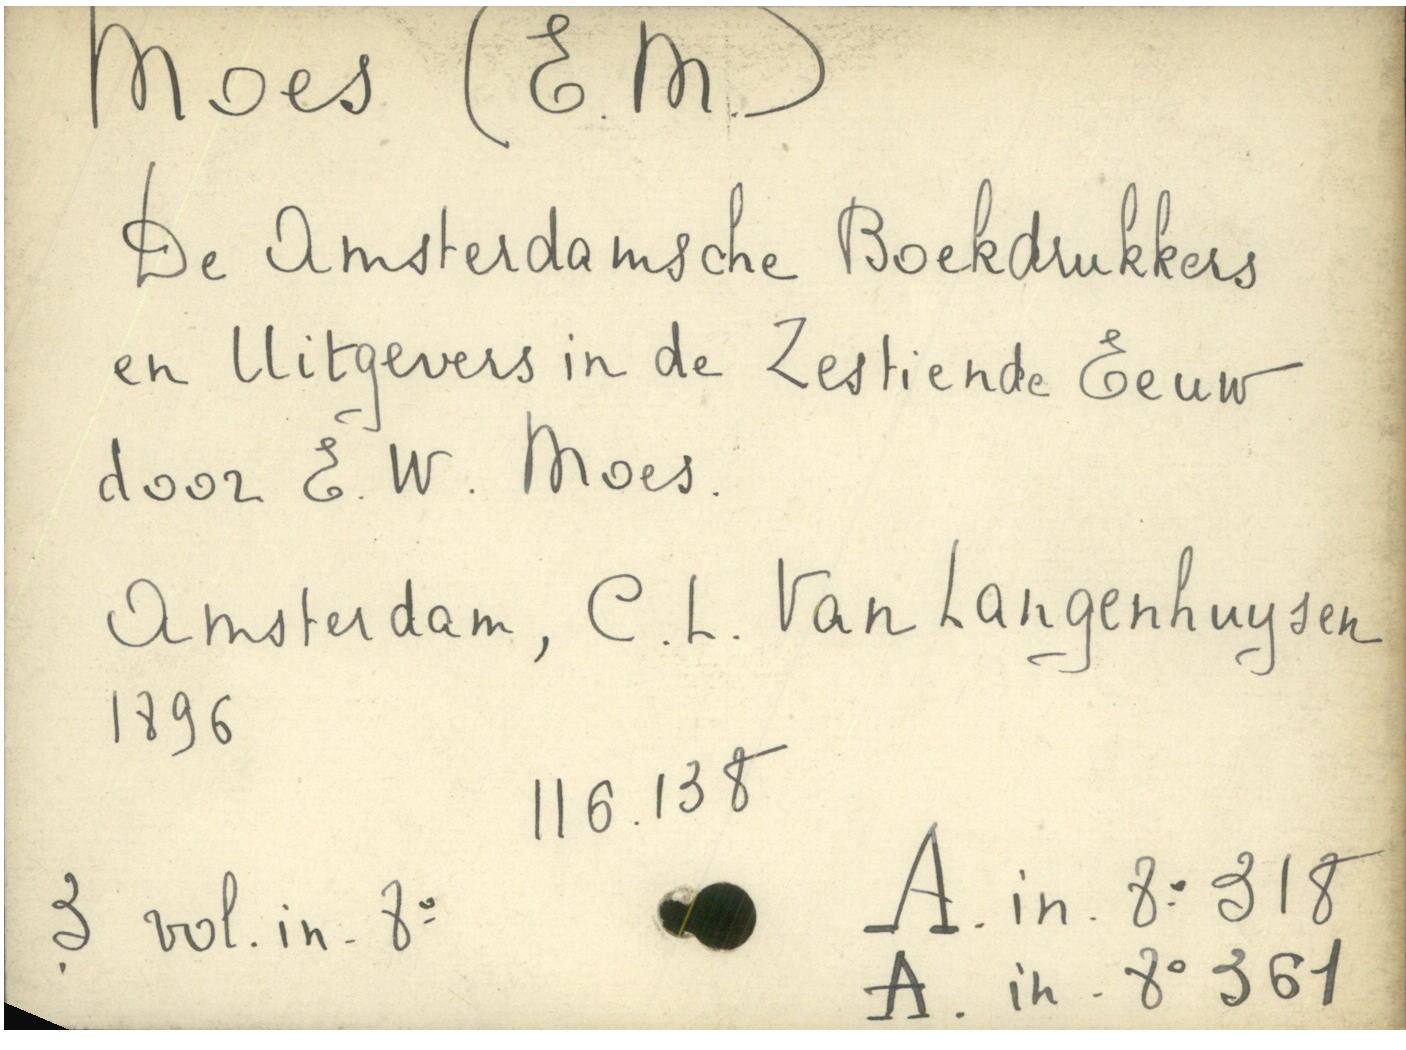 Moes (E. M.)
De Amsterdamsche Boekdrukkers
en Uitgevers in de Zestiende Eeuw
door E. W. Moes.
Amsterdam, C. L. Van Langenhuysen
1896
116.138
3 vol. in-8º
A. in-8º 318
A. in-8º 361